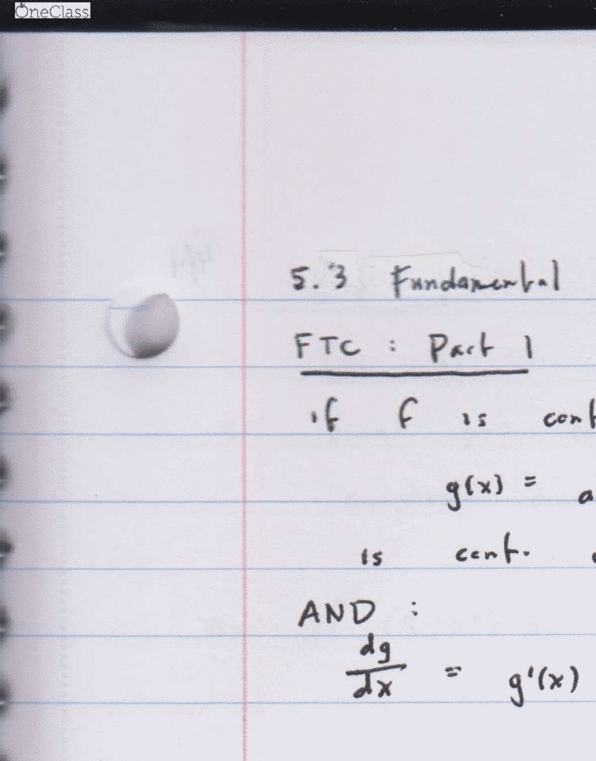 OneClass
5.3 Fundamental
FTC : Part 1
if f is cont
g(x) = a
is cont.
AND :
dg
dx = g'(x)